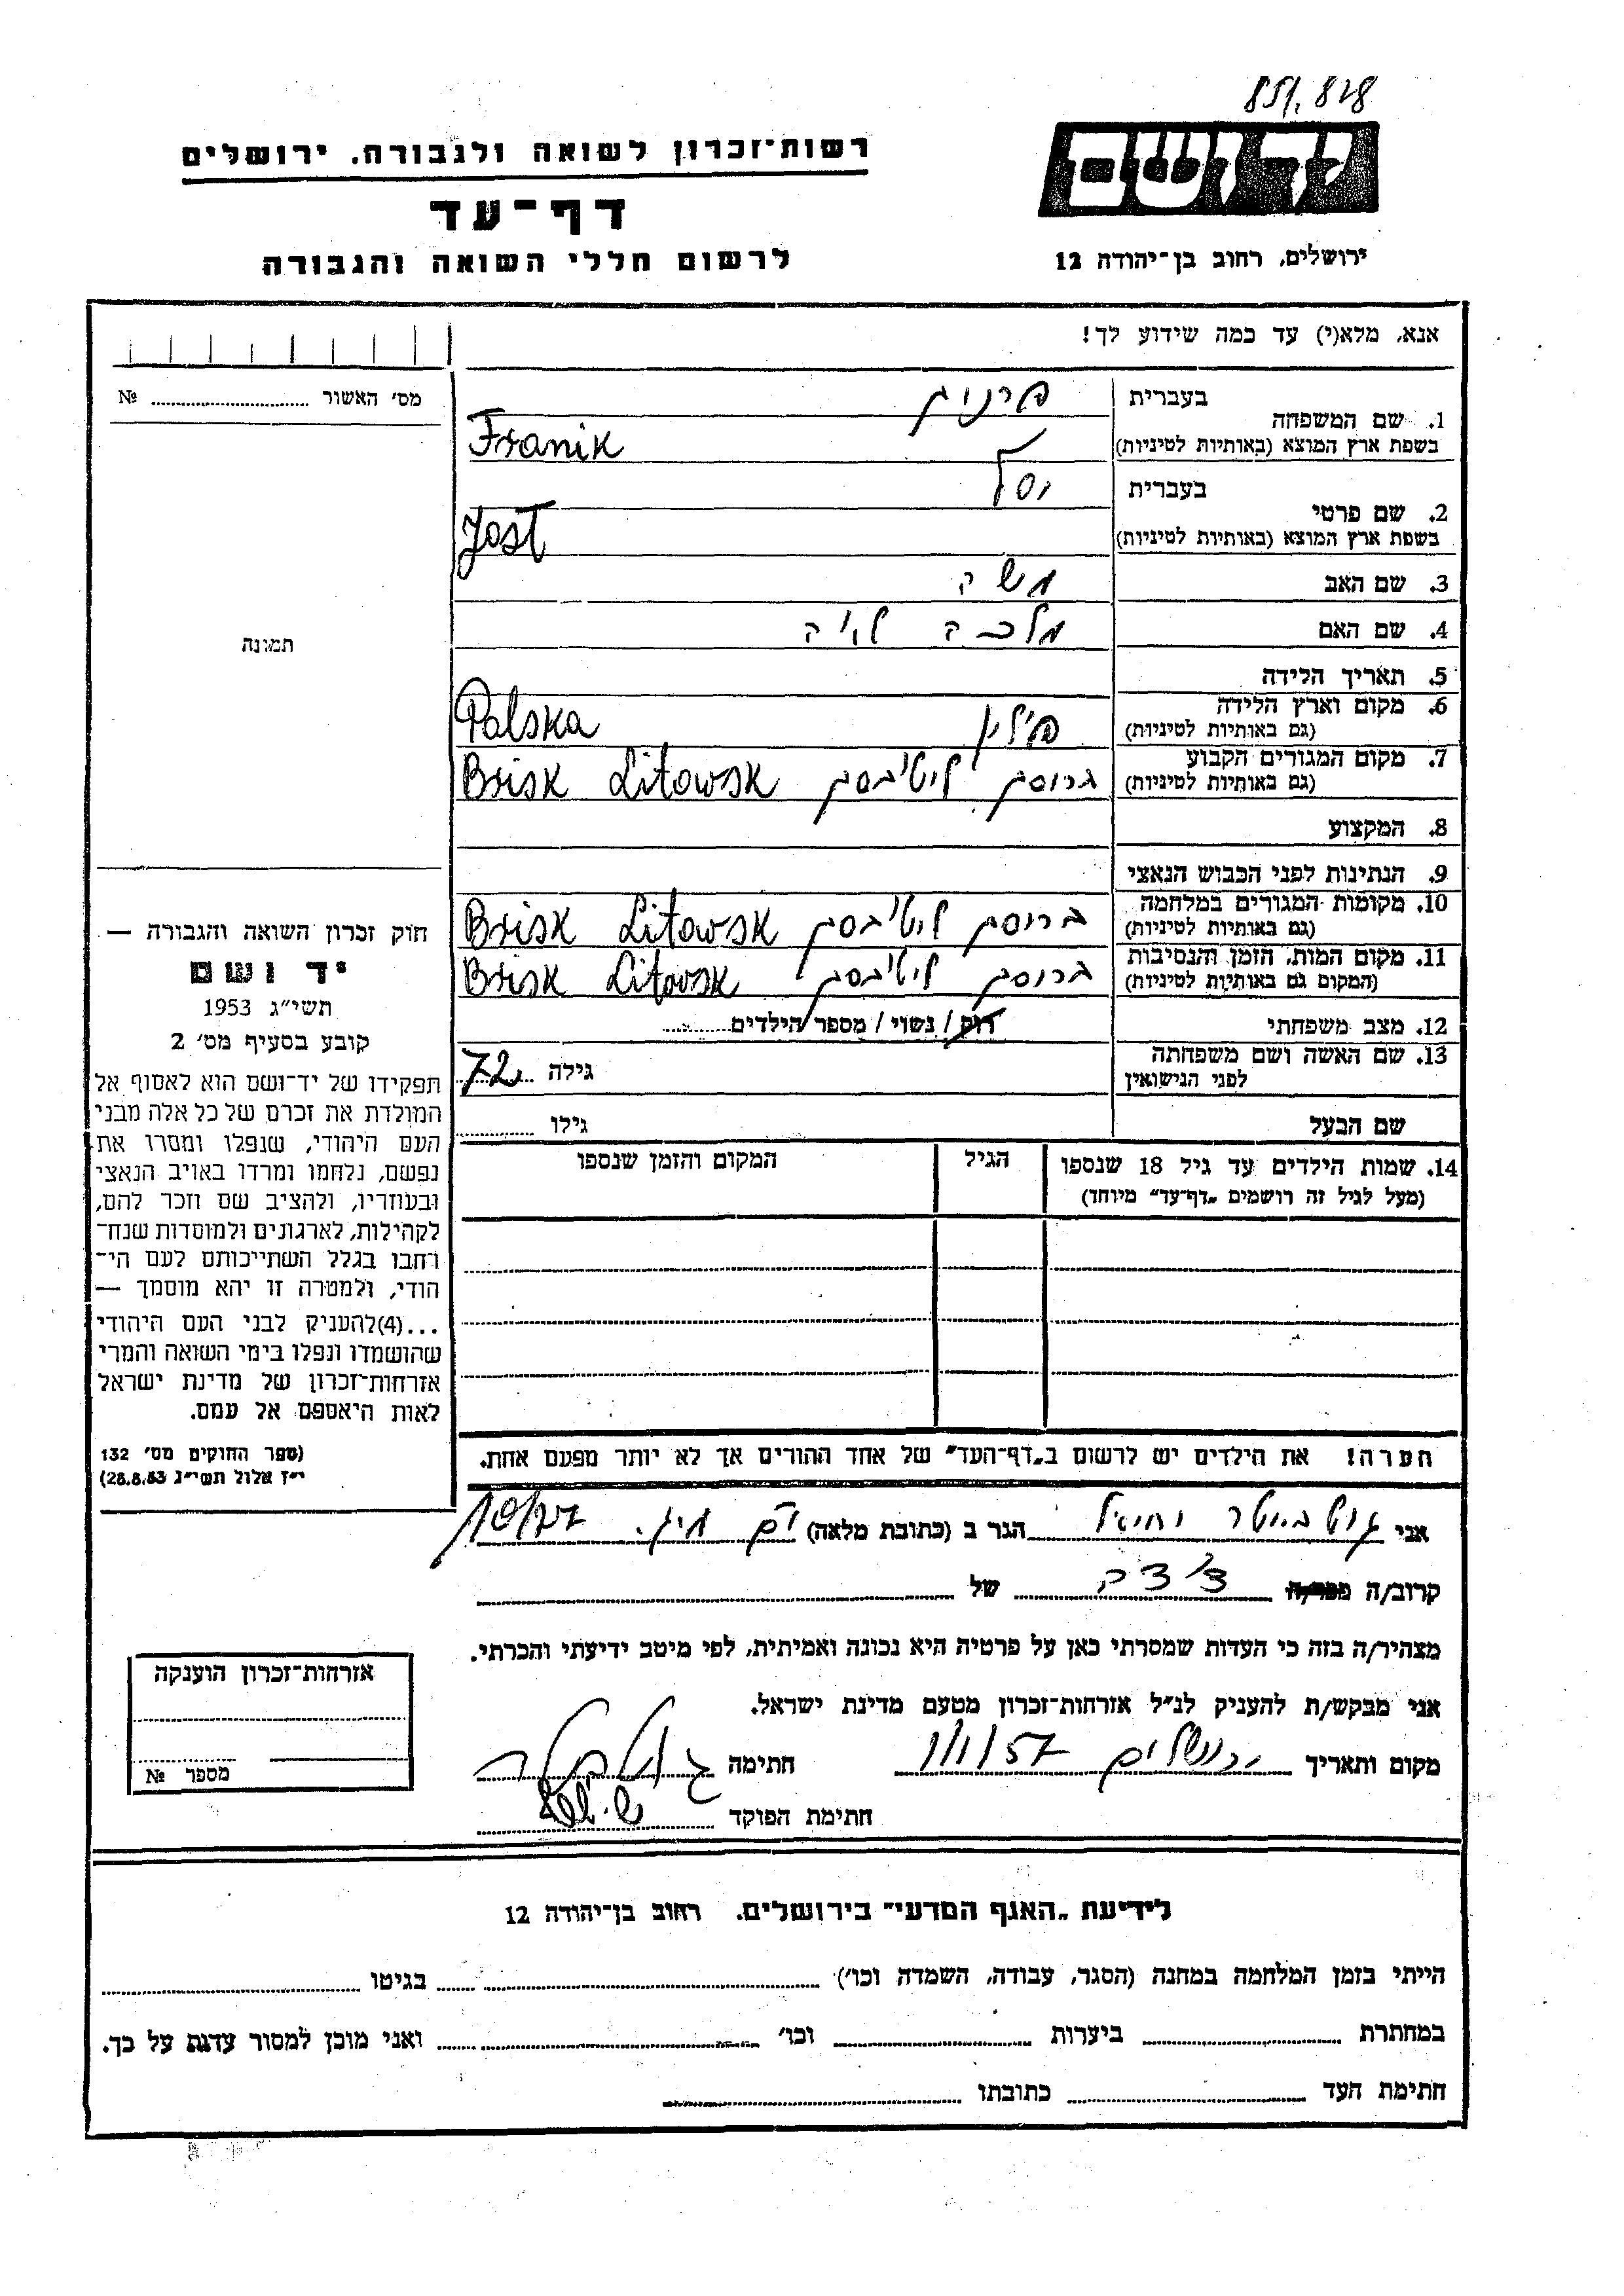 851.828
יד ושם
רשות־זכרון לשואה ולגבורה, ירושלים
דף־עד
לרשום חללי השואה והגבורה
ירושלים, רחוב בן־יהודה 12
אנא, מלא(י) עד כמה שידוע לך!
מס׳ האשור № 
תמונה
1. שם המשפחה
בעברית פרניק
בשפת ארץ המוצא (באותיות לטיניות) Franik
2. שם פרטי
בעברית יוסל
בשפת ארץ המוצא (באותיות לטיניות) Josł
3. שם האב משה
4. שם האם מלכה
5. תאריך הלידה
6. מקום וארץ הלידה פולין Polska
(גם באותיות לטיניות)
7. מקום המגורים הקבוע Brisk Litowsk
(גם באותיות לטיניות)
8. המקצוע
9. הנתינות לפני הכבוש הנאצי
10. מקומות המגורים במלחמה Brisk Litowsk
(גם באותיות לטיניות)
11. מקום המות, הזמן והנסיבות Brisk Litovsk
(המקום גם באותיות לטיניות)
12. מצב משפחתי רווק / נשוי / מספר הילדים
13. שם האשה ושם משפחתה
לפני הנישואין
גילה 72
שם הבעל גילו
14. שמות הילדים עד גיל 18 שנספו הגיל המקום והזמן שנספו
(מעל לגיל זה רושמים „דף־עד״ מיוחד)
הערה! את הילדים יש לרשום ב„דף־העד״ של אחד ההורים אך לא יותר מפעם אחת.
חוק זכרון השואה והגבורה —
יד ושם
תשי״ג 1953
קובע בסעיף מס׳ 2
תפקידו של יד־ושם הוא לאסוף אל
המולדת את זכרם של כל אלה מבני
העם היהודי, שנפלו ומסרו את
נפשם, נלחמו ומרדו באויב הנאצי
ובעוזריו, ולהציב שם וזכר להם,
לקהילות, לארגונים ולמוסדות שנח־
רחבו בגלל השתייכותם לעם הי־
הודי, ולמטרה זו יהא מוסמך —
...(4)להעניק לבני העם היהודי
שהושמדו ונפלו בימי השואה והמרי
אזרחות־זכרון של מדינת ישראל
לאות היאספם אל עמם.
(ספר החוקים מס׳ 132
י״ז אלול תשי״ג 28.8.53)
אני הגר ב (כתובת מלאה)
קרוב/ה מכר/ה של
מצהיר/ה בזה כי העדות שמסרתי כאן על פרטיה היא נכונה ואמיתית, לפי מיטב ידיעתי והכרתי.
אני מבקש/ת להעניק לנ״ל אזרחות־זכרון מטעם מדינת ישראל.
מקום ותאריך ירושלים 1/1/57 חתימה
חתימת הפוקד
אזרחות־זכרון הוענקה
מספר №
לידיעת „האגף המדעי״ בירושלים, רחוב בן־יהודה 12
הייתי בזמן המלחמה במחנה (הסגר, עבודה, השמדה וכו׳) בגיטו
במחתרת ביערות וכו׳ ואני מוכן למסור עדות על כך.
חתימת העד כתובתו